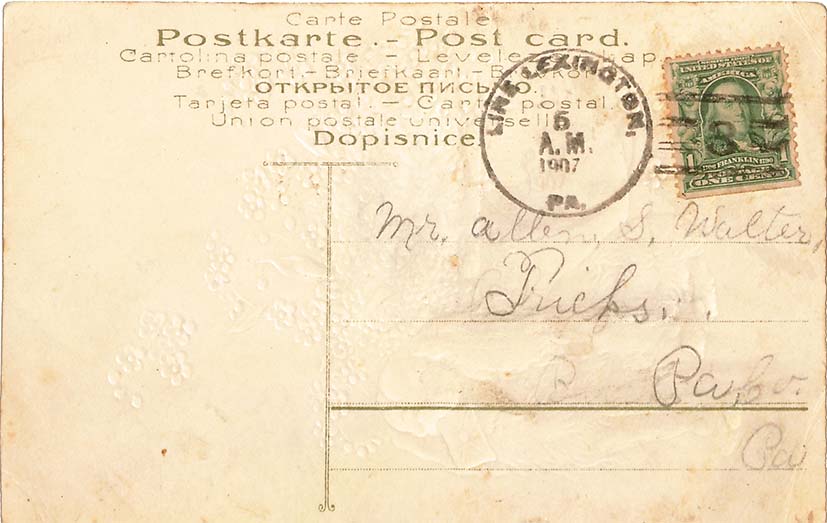 Carte Postale
Postkarte. - Post card.
Cartolina postale. - Levelezö-Lap.
Brefkort. - Briefkaart. -
ОТКРЫТОЕ ПИСЬМО.
Tarjeta postal. - Carta postal.
Union postale universelle
Dopisnice
LINE LEXINGTON,
5
A.M.
1907
PA.
UNITED STATES OF
AMERICA
1
FRANKLIN
ONE
Mr. Allen, S, Walter,
Pa